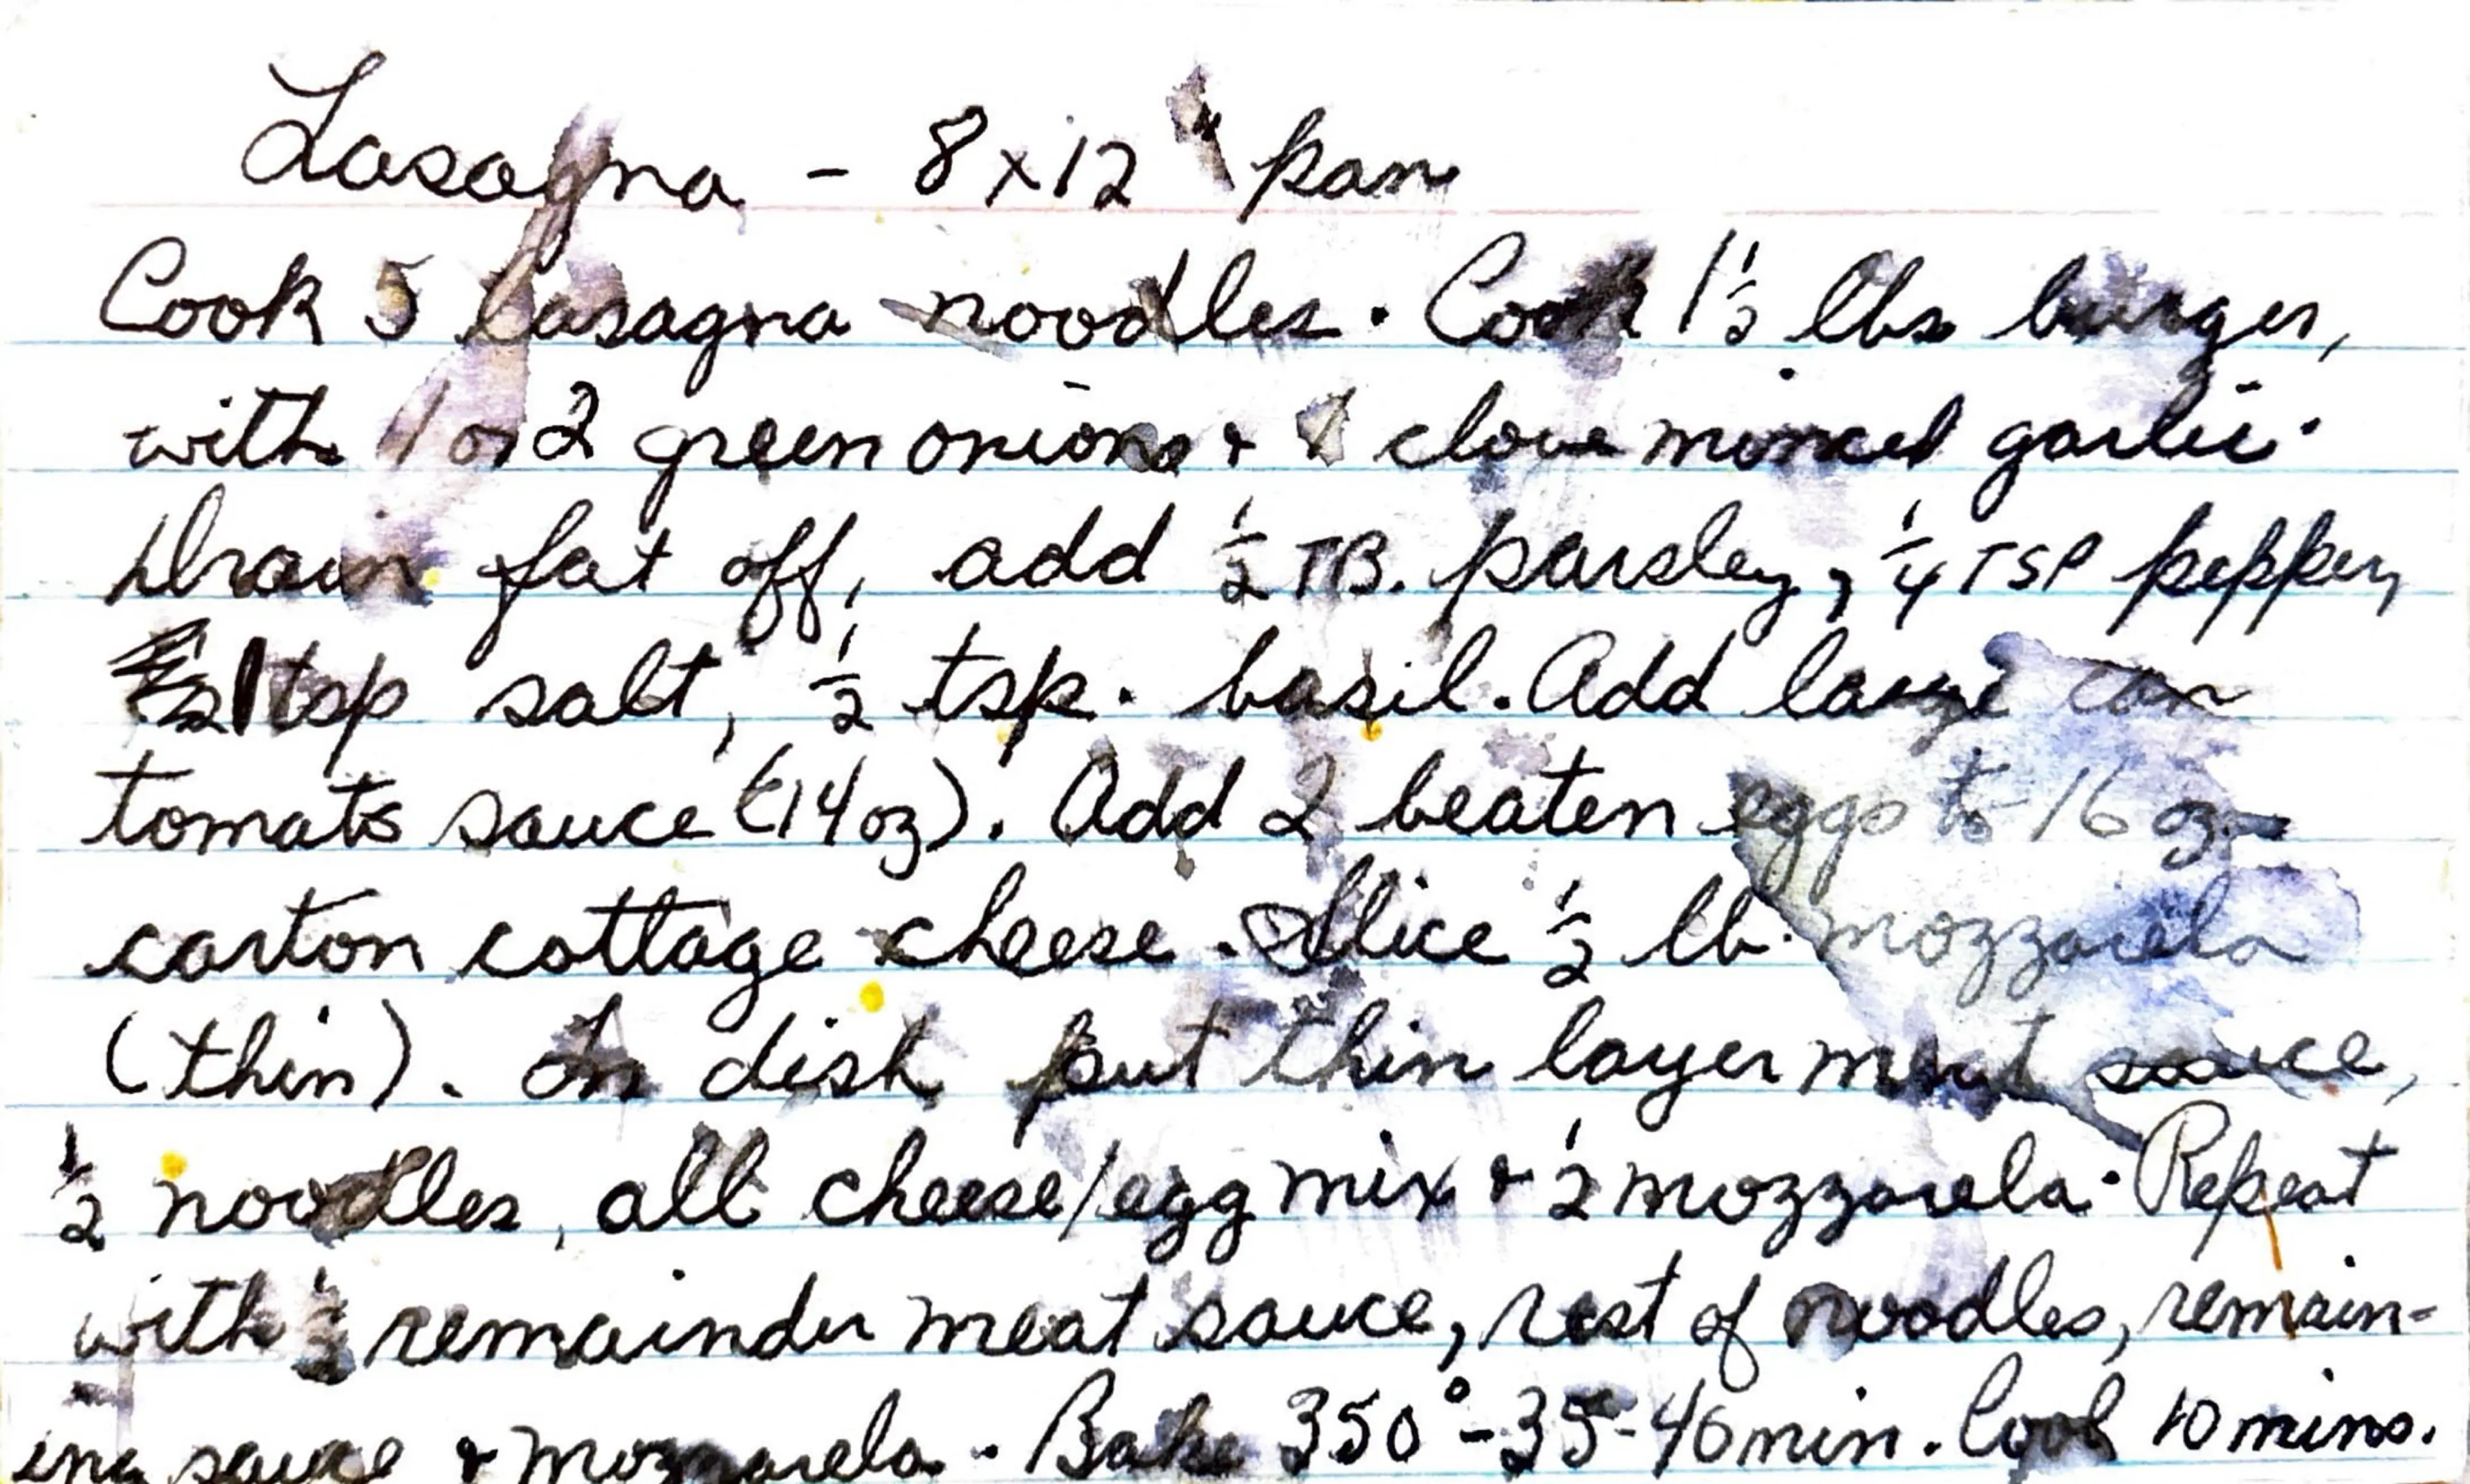 Lasagna - 8x12 " pan
Cook 5 lasagna noodles. Cook 1½ lbs burger,
with 1 or 2 green onions & 1 clove minced garlic.
Drain fat off, add ½ TB. parsley, ¼ TSP pepper,
1 tsp salt, ½ tsp. basil. Add large can
tomato sauce (14oz). Add 2 beaten eggs to 16 oz
carton cottage cheese. Slice ½ lb. mozzarela
(thin). In dish put thin layer meat sauce,
½ noodles, all cheese/egg mix & ½ mozzarela. Repeat
with ½ remainder meat sauce, rest of noodles, remain-
ing sauce & mozzarela. Bake 350°-35-40min. Cool 10 mins.